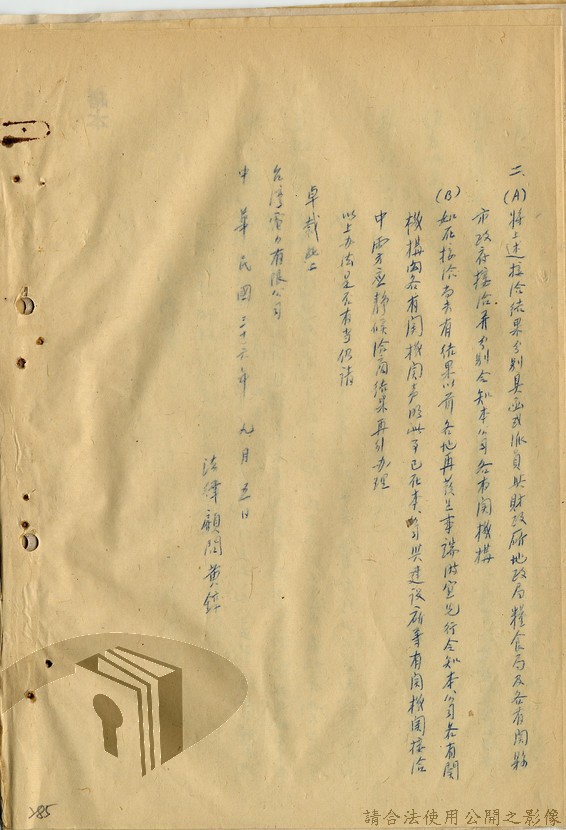 二、(A)將上述接洽結果分別具函或派員與財政廳地政局糧食局及各有關縣
市政府接洽并分別令知本公司各有關機構
(B)如在接洽尚未有結果以前各地再發生事誤時宜先行令知本公司各有關
機構向各有關機關聲明此事已在本公司與建設廳等有關機關接洽
中雙方應靜候洽商結果再行办理
以上办法是否有當仍請
卓裁此上
台灣電力有限公司
中華民國三十六年九月五日
法律顧問黃
285
請合法使用公開之影像